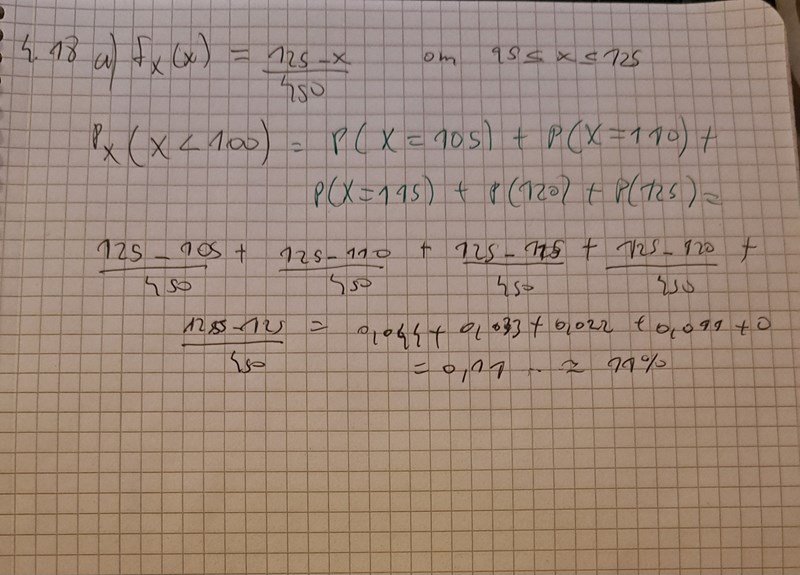 4.18 a) f_X(x) = (125-x)/450 om 95 ≤ x ≤ 125
P_X(X < 100) = P(X=105) + P(X=110) +
P(X=115) + P(120) + P(125) =
(125-105)/450 + (125-110)/450 + (125-115)/450 + (125-120)/450 +
(125-125)/450 = 0,044 + 0,033 + 0,022 + 0,011 + 0
= 0,11.. ≈ 11%